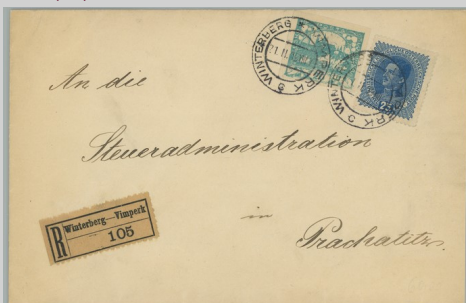 WINTERBERG
WINTERBERG
25
An die
Steueradministration
in
Prachatitz
R Winterberg—Vimperk
105